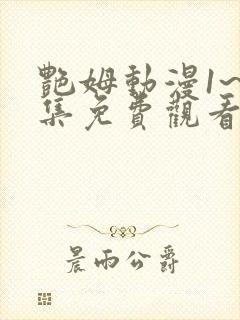 艷姆動漫1~
集免費觀看
晨雨公爵